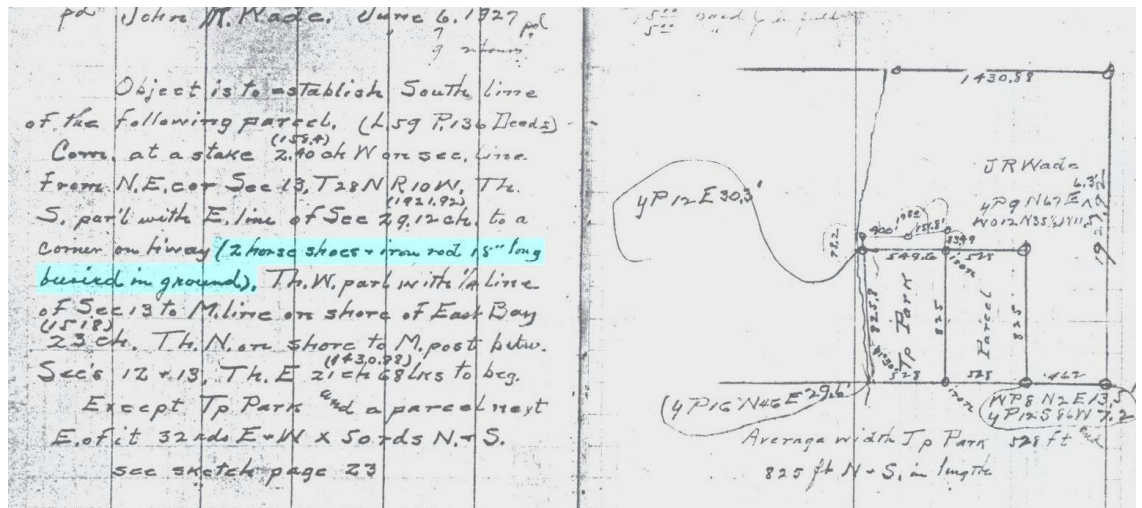 John M. Wade. June 6, 1927 pd
9
Object is to establish South line
of the following parcel. (L.59 P.136 Deeds)
(158.4)
Com. at a stake 2.40 ch W on sec. line
from N.E. cor Sec 13, T28N R10W, Th.
(1921.92)
S. par'l with E. line of Sec 29.12 ch. to a
corner on hiway (2 horse shoes + iron rod 15" long
buried in ground), Th. W. parl with 1/4 line
of Sec 13 to M. line on shore of East Bay
(1518)
23 ch. Th. N. on shore to M. post betw.
(1430.88)
Sec's 12 + 13, Th. E 21 ch 68 lks to beg.
Except Tp Park and a parcel next
E. of it 32 rds E + W x 50 rds N. + S.
see sketch page 23
1430.88
JR Wade
6.3'
yP9 N67E
yP12E30.3'
1921.92
78.2
400'
158.8'
549.6
iron
528
825.8
Tp Park
825
Parcel
825
528
528
462
iron
(yP16" N46E 29.6')
WP8 N2E13.5
yP12S86W7.2
Average width Tp Park 528 ft and
825 ft N + S. in length